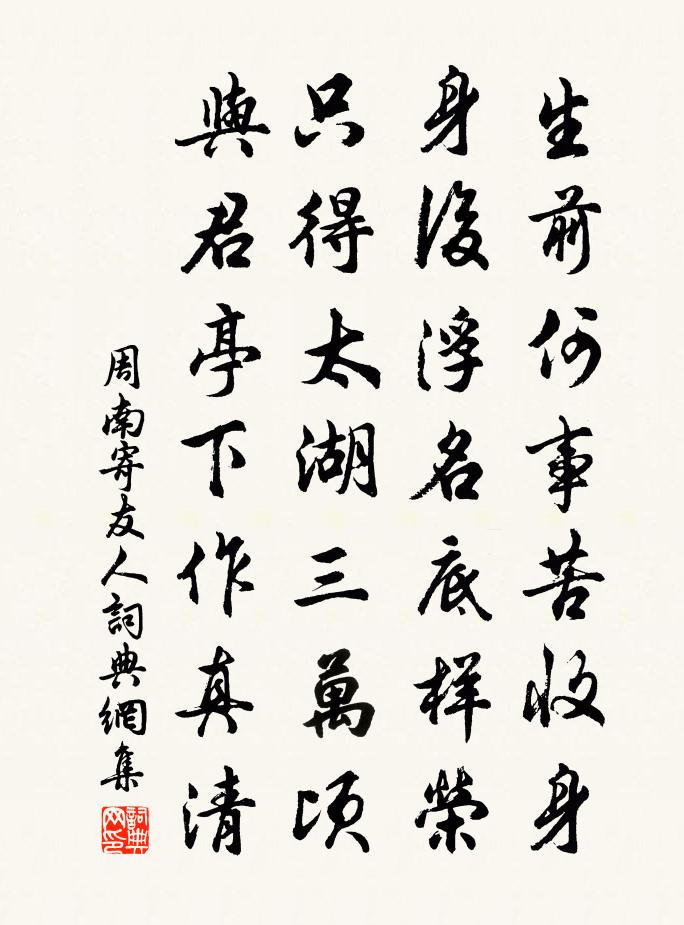 生前何事苦收身
身後浮名底样榮
只得太湖三萬頃
與君亭下作真清
周南寄友人詞典網集
詞典網印